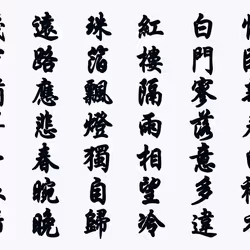 白門寥落意多違
紅樓隔雨相望冷
珠箔飄燈獨自歸
遠路應悲春晼晚